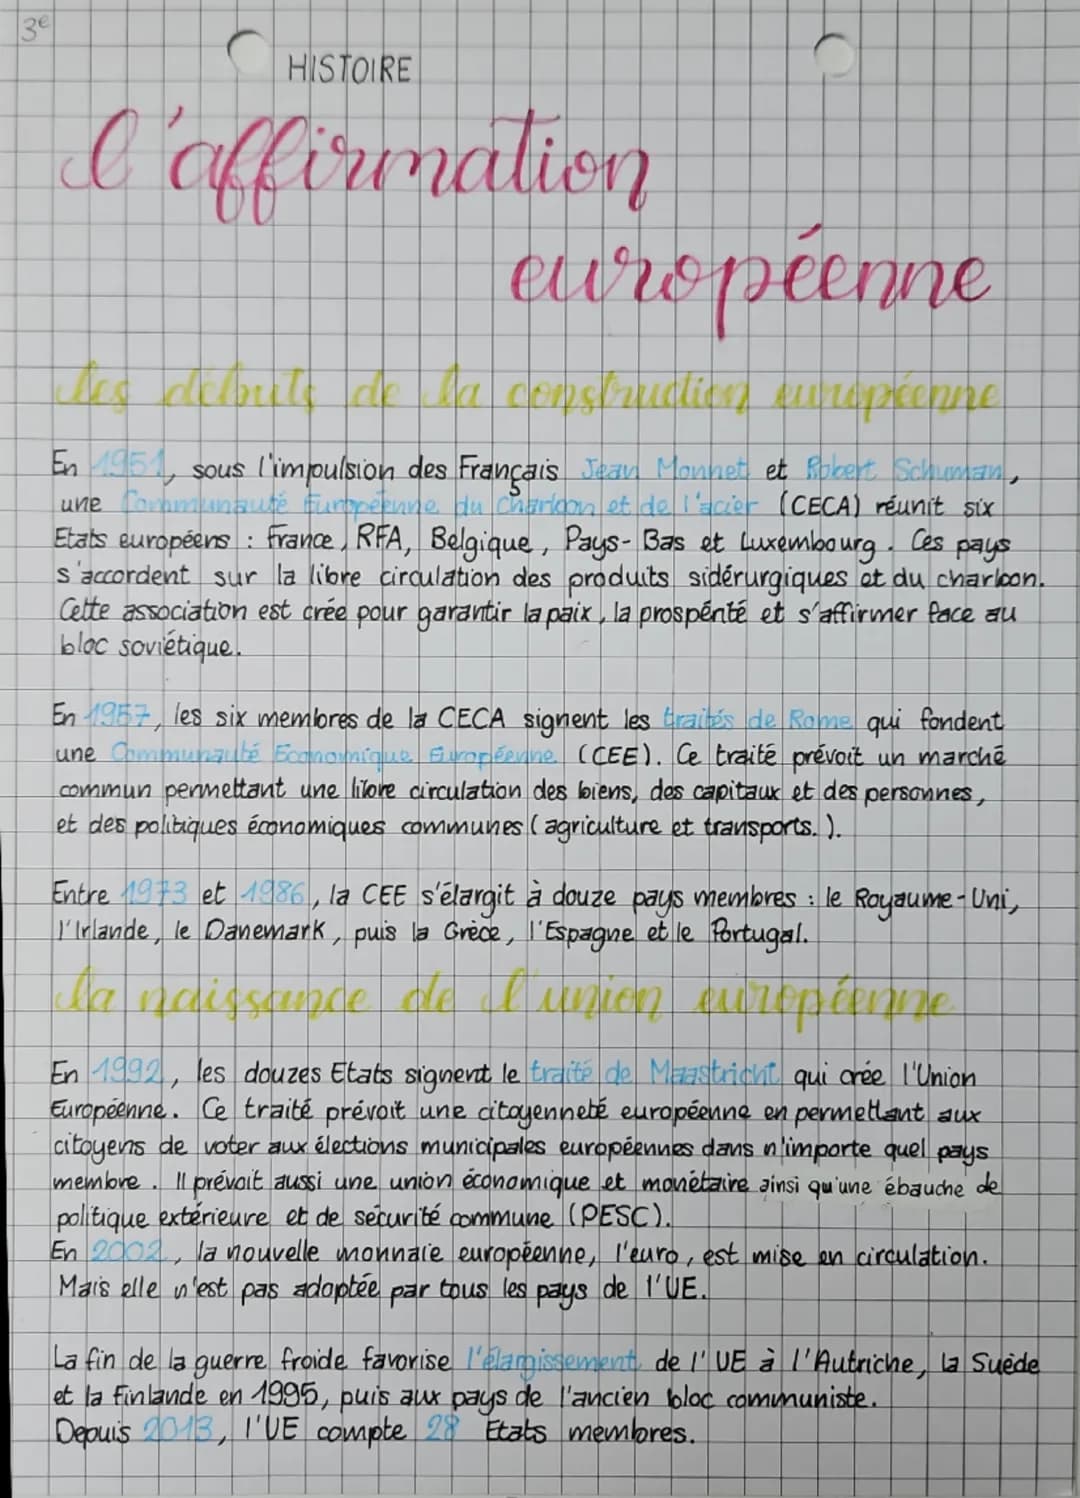 3e
HISTOIRE
l'affirmation
européenne
les débuts de la construction européenne
En 1951, sous l'impulsion des Français Jean Monnet et Robert Schuman,
une Communauté Européenne du Charbon et de l'acier (CECA) réunit six
Etats européens : France, RFA, Belgique, Pays-Bas et Luxembourg. Ces pays
s'accordent sur la libre circulation des produits sidérurgiques et du charbon.
Cette association est crée pour garantir la paix, la prospérité et s'affirmer face au
bloc soviétique.
En 1957, les six membres de la CECA signent les traités de Rome qui fondent
une Communauté Economique Européenne (CEE). Ce traité prévoit un marché
commun permettant une libre circulation des biens, des capitaux et des personnes,
et des politiques économiques communes (agriculture et transports.).
Entre 1973 et 1986, la CEE s'élargit à douze pays membres : le Royaume-Uni,
l'Irlande, le Danemark, puis la Grèce, l'Espagne et le Portugal.
la naissance de l'union européenne
En 1992, les douzes Etats signent le traité de Maastricht qui crée l'Union
Européenne. Ce traité prévoit une citoyenneté européenne en permettant aux
citoyens de voter aux élections municipales européennes dans n'importe quel pays
membre. Il prévoit aussi une union économique et monétaire ainsi qu'une ébauche de
politique extérieure et de sécurité commune (PESC).
En 2002, la nouvelle monnaie européenne, l'euro, est mise en circulation.
Mais elle n'est pas adoptée par tous les pays de l'UE.
La fin de la guerre froide favorise l'élargissement de l'UE à l'Autriche, la Suède
et la Finlande en 1995, puis aux pays de l'ancien bloc communiste.
Depuis 2013, l'UE compte 28 Etats membres.